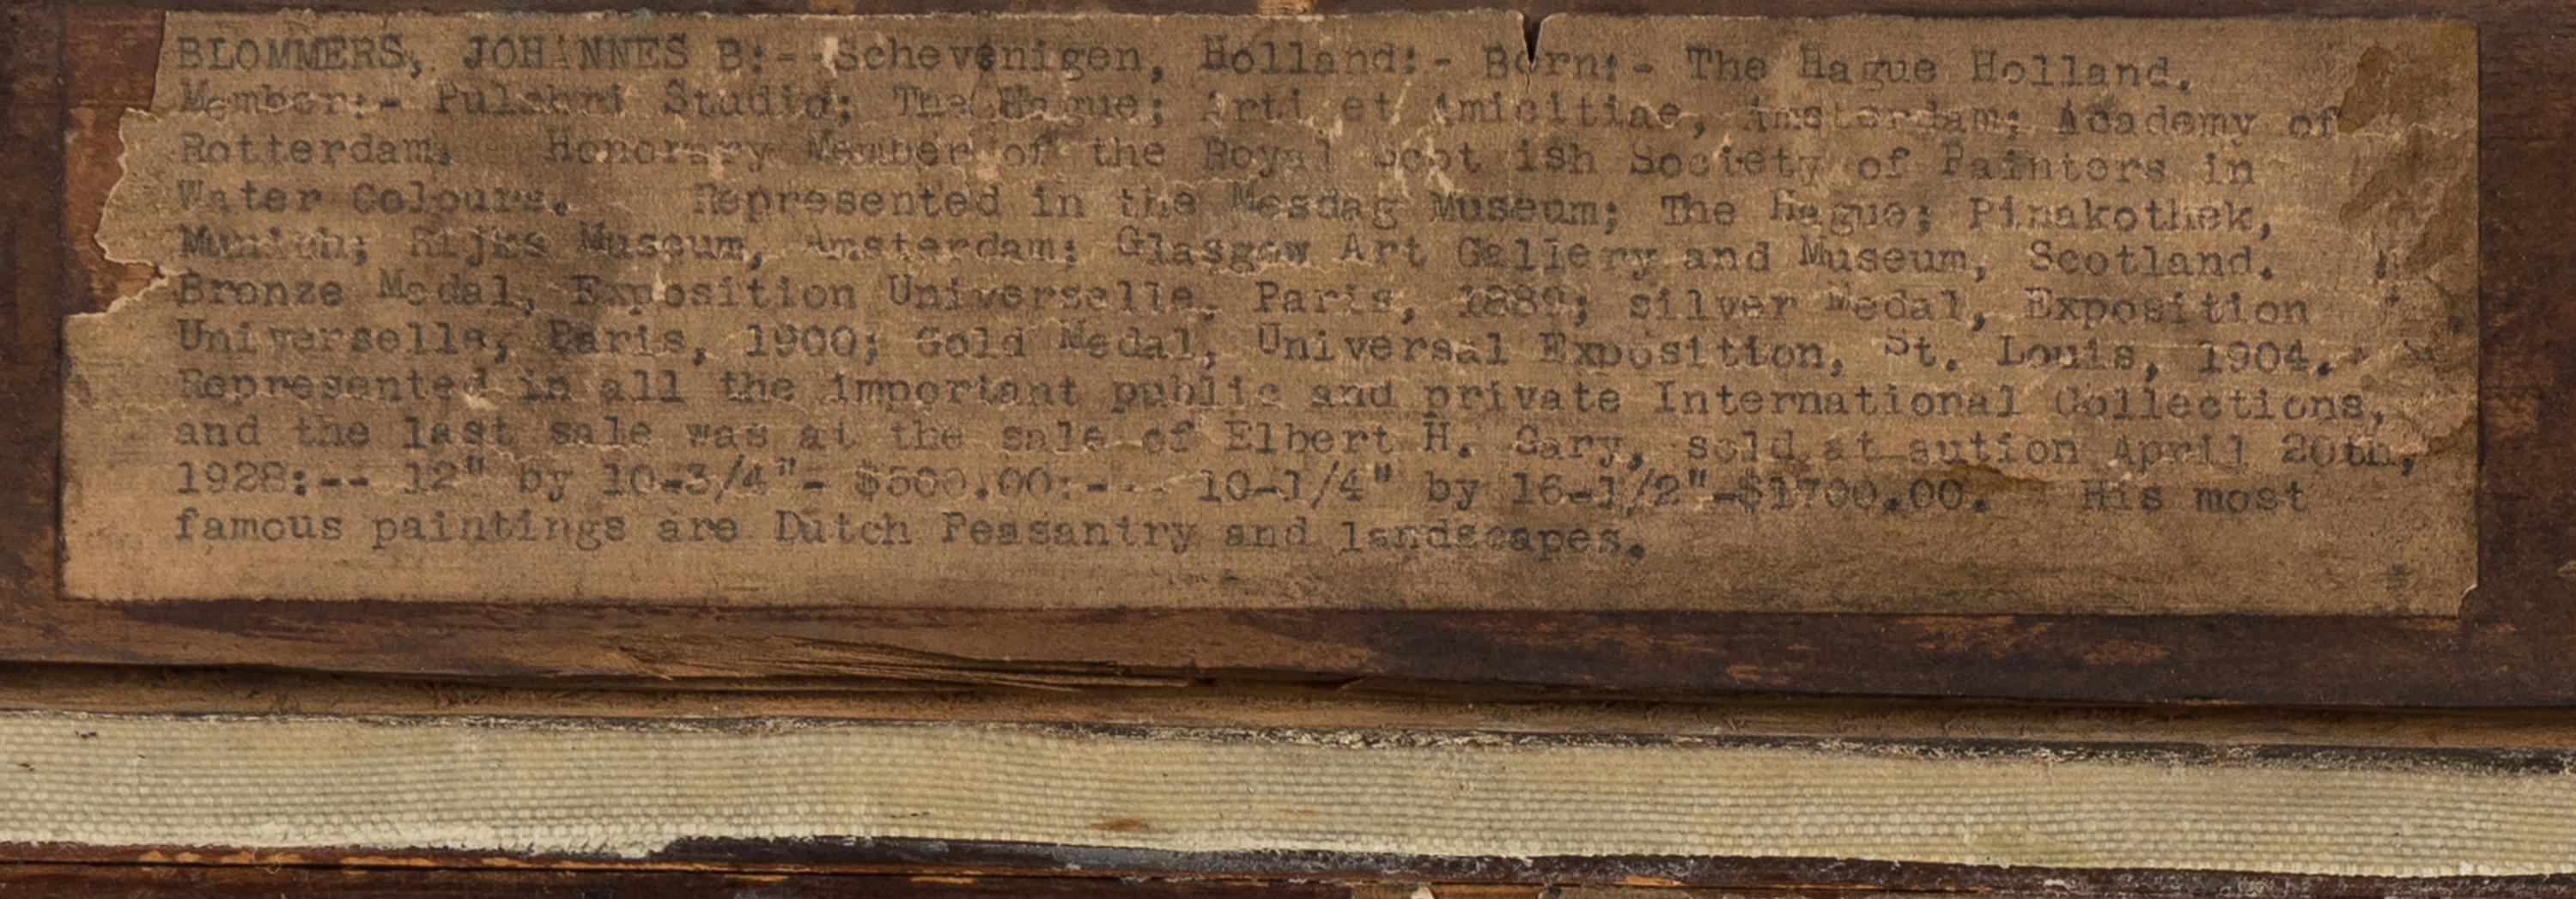 BLOMMERS, JOHANNES B:- Schevenigen, Holland:- Born:- The Hague Holland.
Member:- Pulchri Studio; The Hague; Arti et Amicitiae, Amsterdam; Academy of
Rotterdam. Honorary Member of the Royal Scot ish Society of Painters in
Water Colours. Represented in the Mesdag Museum; The Hague; Pinakothek,
Munich; Rijks Museum, Amsterdam; Glasgow Art Gallery and Museum, Scotland.
Bronze Medal, Exposition Universelle, Paris, 1889; silver Medal, Exposition
Universelle, Paris, 1900; Gold Medal, Universal Exposition, St. Louis, 1904.
Represented in all the important public and private International Collections,
and the last sale was at the sale of Elbert H. Gary, sold at aution April 20th,
1928:-- 12" by 10-3/4"- $500.00:--- 10-1/4" by 16-1/2"-$1700.00. His most
famous paintings are Dutch Peasantry and landscapes.